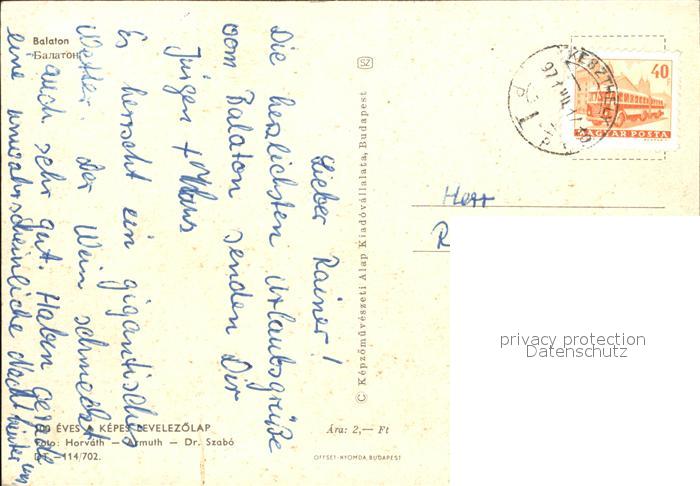 Balaton
Балатон
Lieber Rainer!
Die herzlichsten Urlaubsgrüße
vom Balaton senden Dir
Jürgen + Klaus
Es herrscht ein gigantisches
Wetter. Der Wein schmeckt
auch sehr gut. Haben gerade
eine unwahrscheinliche Nacht hinter uns
100 ÉVES A KÉPES LEVELEZŐLAP
Foto: Horváth — Azmuth — Dr. Szabó
—114/702.
Ára: 2,— Ft
OFFSET-NYOMDA, BUDAPEST
© Képzőművészeti Alap Kiadóvállalata, Budapest
SZ
KESZTHELY
40
MAGYAR POSTA
Herr
R
privacy protection
Datenschutz